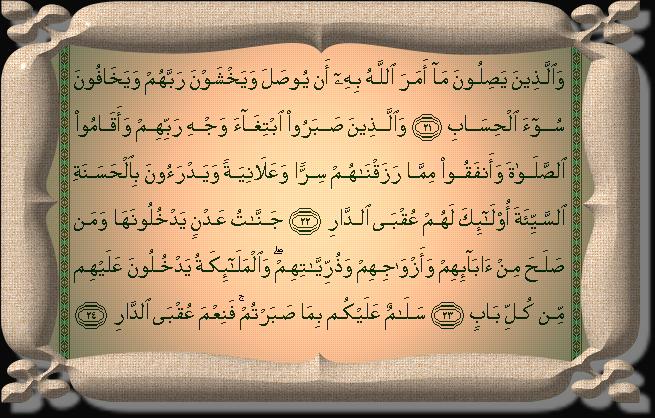 وَٱلَّذِينَ يَصِلُونَ مَآ أَمَرَ ٱللَّهُ بِهِۦٓ أَن يُوصَلَ وَيَخْشَوْنَ رَبَّهُمْ وَيَخَافُونَ
سُوٓءَ ٱلْحِسَابِ ٢١ وَٱلَّذِينَ صَبَرُوا۟ ٱبْتِغَآءَ وَجْهِ رَبِّهِمْ وَأَقَامُوا۟
ٱلصَّلَوٰةَ وَأَنفَقُوا۟ مِمَّا رَزَقْنَٰهُمْ سِرًّا وَعَلَانِيَةً وَيَدْرَءُونَ بِٱلْحَسَنَةِ
ٱلسَّيِّئَةَ أُو۟لَٰٓئِكَ لَهُمْ عُقْبَى ٱلدَّارِ ٢٢ جَنَّٰتُ عَدْنٍ يَدْخُلُونَهَا وَمَن
صَلَحَ مِنْ ءَابَآئِهِمْ وَأَزْوَٰجِهِمْ وَذُرِّيَّٰتِهِمْ ۖ وَٱلْمَلَٰٓئِكَةُ يَدْخُلُونَ عَلَيْهِم
مِّن كُلِّ بَابٍ ٢٣ سَلَٰمٌ عَلَيْكُم بِمَا صَبَرْتُمْ ۚ فَنِعْمَ عُقْبَى ٱلدَّارِ ٢٤